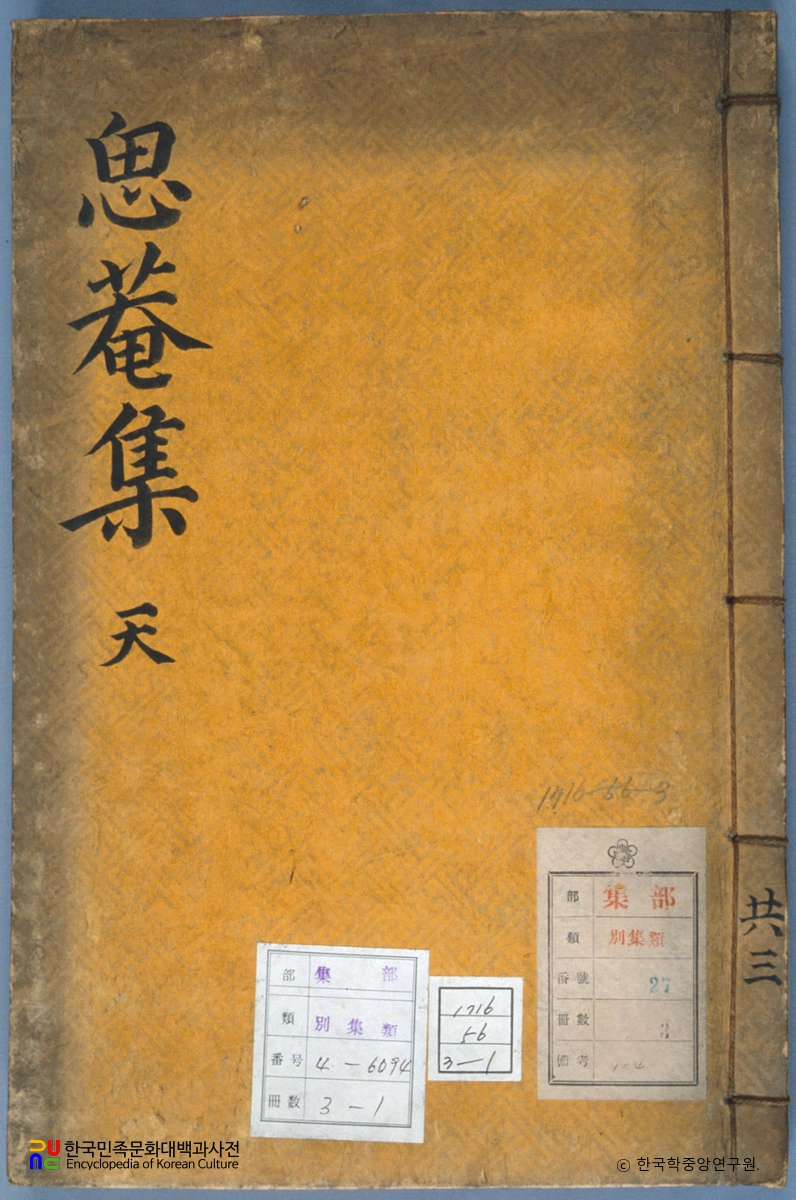 思菴集 天
共三
1716-56-3
部 集部
類 別集類
番號 27
冊數 3
備考
部 集部
類 別集類
番号 4-6094
冊数 3-1
1716
56
3-1
한국민족문화대백과사전
Encyclopedia of Korean Culture
© 한국학중앙연구원.